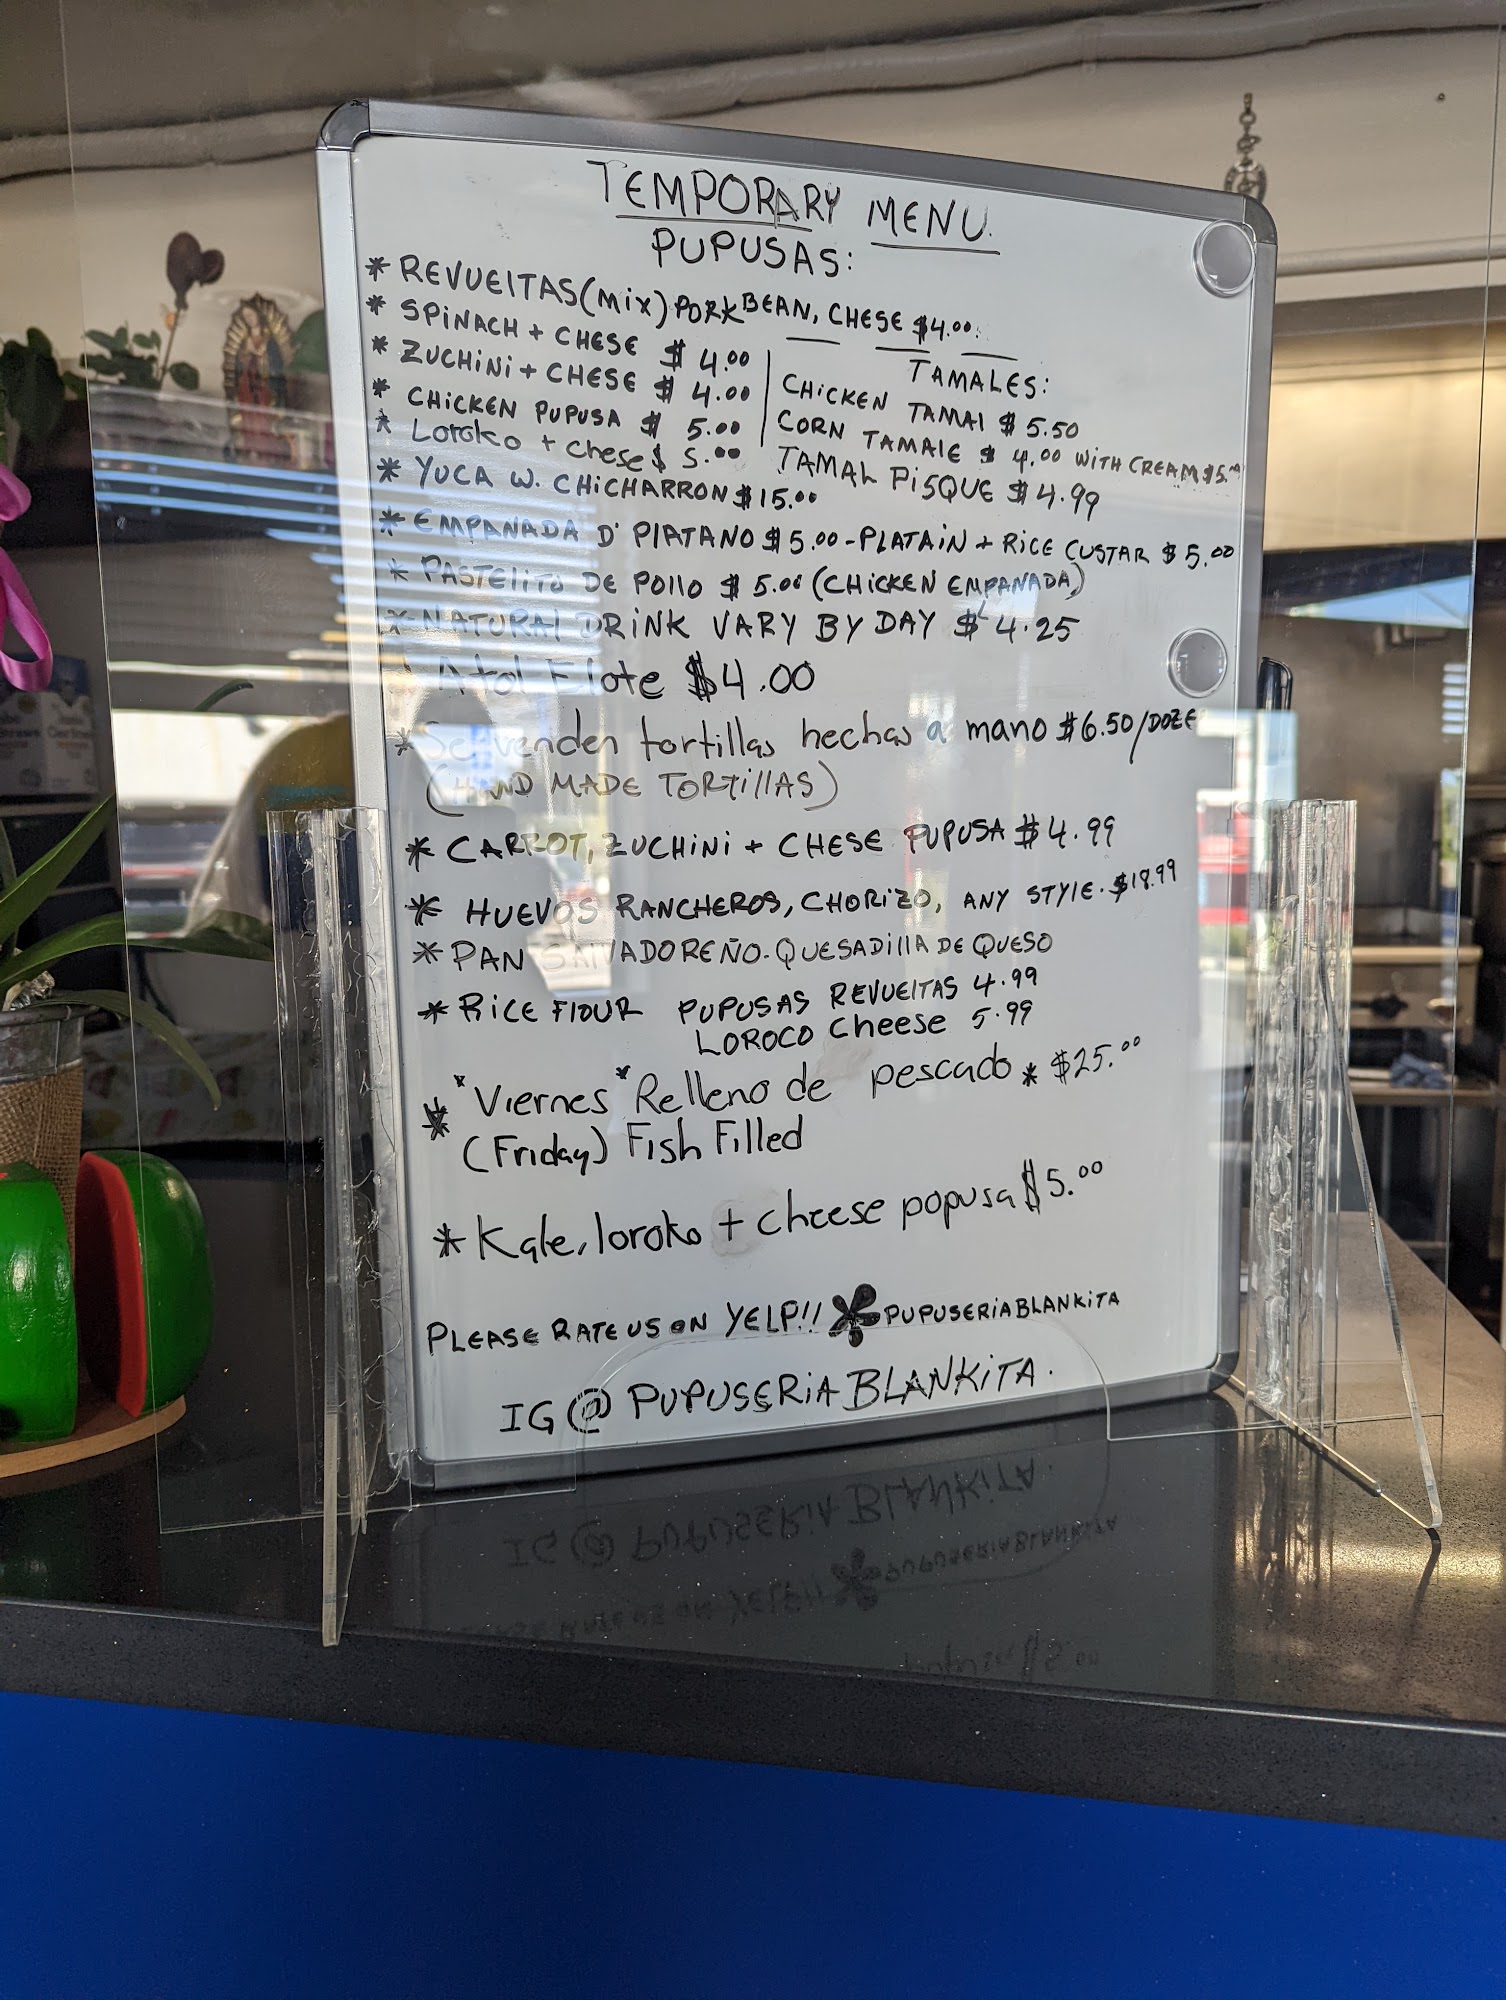 TEMPORARY MENU.
PUPUSAS:
* REVUELTAS (Mix) PORK BEAN, CHESE $4.00.
* SPINACH + CHESE $ 4.00
* ZUCHINI + CHESE $ 4.00
* CHICKEN PUPUSA $ 5.00
* Loroko + chese $ 5.00
TAMALES:
CHICKEN TAMAL $ 5.50
CORN TAMALE $ 4.00 WITH CREAM $5.
TAMAL PISQUE $ 4.99
* YUCA W. CHICHARRON $15.00
* EMPANADA D' PLATANO $5.00 - PLATAIN + RICE CUSTAR $ 5.00
* PASTELITO DE POLLO $ 5.00 (CHICKEN EMPANADA)
* NATURAL DRINK VARY BY DAY $ 4.25
Atol Elote $4.00
* Se venden tortillas hechas a mano $6.50/DOZE
(HAND MADE TORTILLAS)
* CARROT, ZUCHINI + CHESE PUPUSA $4.99
* HUEVOS RANCHEROS, CHORIZO, ANY STYLE. $18.99
* PAN SALVADOREÑO. QUESADILLA DE QUESO
* RICE FLOUR PUPUSAS REVUELTAS 4.99
LOROCO Cheese 5.99
* "Viernes" Relleno de pescado * $25.00
(Friday) Fish Filled
* Kale, loroko + cheese popusa $5.00
PLEASE RATE US ON YELP!! PUPUSERIABLANKITA
IG @ PUPUSERIABLANKITA.